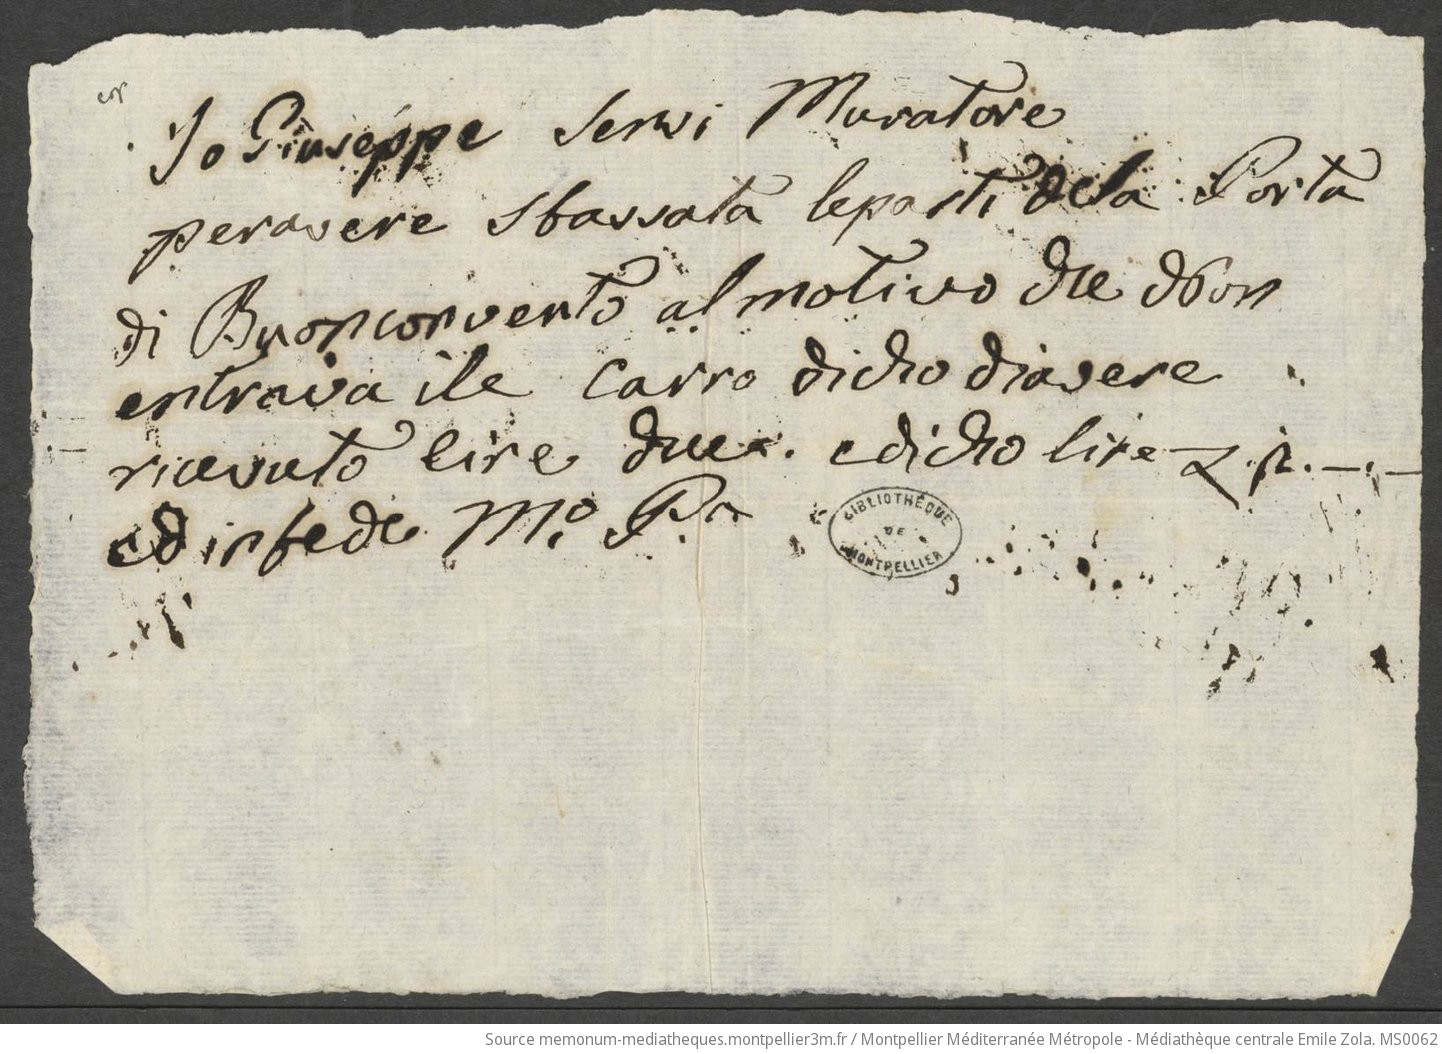 Jo Giuseppe Servi Muratore
peravere sbassata leparti dela Porta
di Buonconvento al motivo che don
entrava ile Carro dicho diavere
ricevuto lire due. e dicho lire 2
ed in fede M.o P.a
BIBLIOTHÈQUE
DE
MONTPELLIER
Source memonum-mediatheques.montpellier3m.fr / Montpellier Méditerranée Métropole - Médiathèque centrale Emile Zola. MS0062